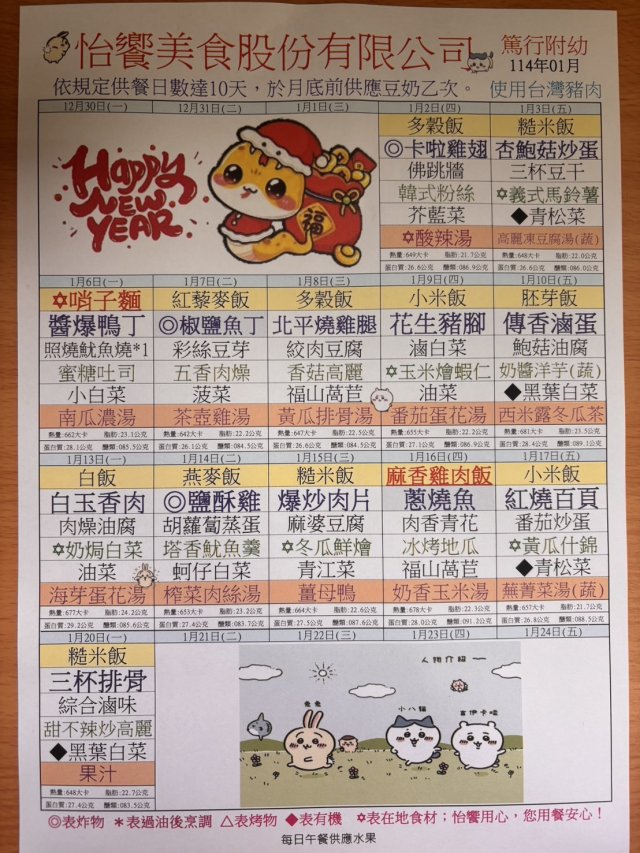 怡饗美食股份有限公司 篤行附幼
114年01月
依規定供餐日數達10天，於月底前供應豆奶乙次。 使用台灣豬肉
12月30日(一) 12月31日(二) 1月1日(三) 1月2日(四) 1月3日(五)
多穀飯 糙米飯
Happy ◎卡啦雞翅 杏鮑菇炒蛋
NEW 佛跳牆 三杯豆干
YEAR 福 韓式粉絲 ✡義式馬鈴薯
芥藍菜 ◆青松菜
✡酸辣湯 高麗凍豆腐湯(蔬)
熱量:649大卡 脂肪:21.7公克 熱量:648大卡 脂肪:22.0公克
蛋白質:26.6公克 醣類:086.9公克 蛋白質:26.6公克 醣類:086.0公克
1月6日(一) 1月7日(二) 1月8日(三) 1月9日(四) 1月10日(五)
✡哨子麵 紅藜麥飯 多穀飯 小米飯 胚芽飯
醬爆鴨丁 ◎椒鹽魚丁 北平燒雞腿 花生豬腳 傳香滷蛋
照燒魷魚燒*1 彩絲豆芽 絞肉豆腐 滷白菜 鮑菇油腐
蜜糖吐司 五香肉燥 香菇高麗 ✡玉米燴蝦仁 奶醬洋芋(蔬)
小白菜 菠菜 福山萵苣 油菜 ◆黑葉白菜
南瓜濃湯 茶壺雞湯 黃瓜排骨湯 番茄蛋花湯 西米露冬瓜茶
熱量:662大卡 脂肪:23.1公克 熱量:642大卡 脂肪:22.2公克 熱量:647大卡 脂肪:22.5公克 熱量:655大卡 脂肪:22.2公克 熱量:681大卡 脂肪:23.5公克
蛋白質:28.1公克 醣類:085.5公克 蛋白質:26.1公克 醣類:084.5公克 蛋白質:26.6公克 醣類:084.5公克 蛋白質:27.1公克 醣類:086.9公克 蛋白質:28.4公克 醣類:089.1公克
1月13日(一) 1月14日(二) 1月15日(三) 1月16日(四) 1月17日(五)
白飯 燕麥飯 糙米飯 麻香雞肉飯 小米飯
白玉香肉 ◎鹽酥雞 爆炒肉片 蔥燒魚 紅燒百頁
肉燥油腐 胡蘿蔔蒸蛋 麻婆豆腐 肉香青花 番茄炒蛋
✡奶焗白菜 塔香魷魚羹 ✡冬瓜鮮燴 冰烤地瓜 ✡黃瓜什錦
油菜 蚵仔白菜 青江菜 福山萵苣 ◆青松菜
海芽蛋花湯 榨菜肉絲湯 薑母鴨 奶香玉米湯 蕪菁菜湯(蔬)
熱量:677大卡 脂肪:24.2公克 熱量:653大卡 脂肪:23.2公克 熱量:664大卡 脂肪:22.6公克 熱量:678大卡 脂肪:22.3公克 熱量:657大卡 脂肪:21.7公克
蛋白質:29.2公克 醣類:085.6公克 蛋白質:27.4公克 醣類:083.7公克 蛋白質:27.5公克 醣類:087.6公克 蛋白質:28.0公克 醣類:091.2公克 蛋白質:26.8公克 醣類:088.5公克
1月20日(一) 1月21日(二) 1月22日(三) 1月23日(四) 1月24日(五)
糙米飯
三杯排骨 人物介紹
綜合滷味 兔兔 小八貓 吉伊卡哇
甜不辣炒高麗
◆黑葉白菜
果汁
熱量:648大卡 脂肪:22.7公克
蛋白質:27.4公克 醣類:083.5公克
◎表炸物 *表過油後烹調 △表烤物 ◆表有機 ✡表在地食材；怡饗用心，您用餐安心！
每日午餐供應水果